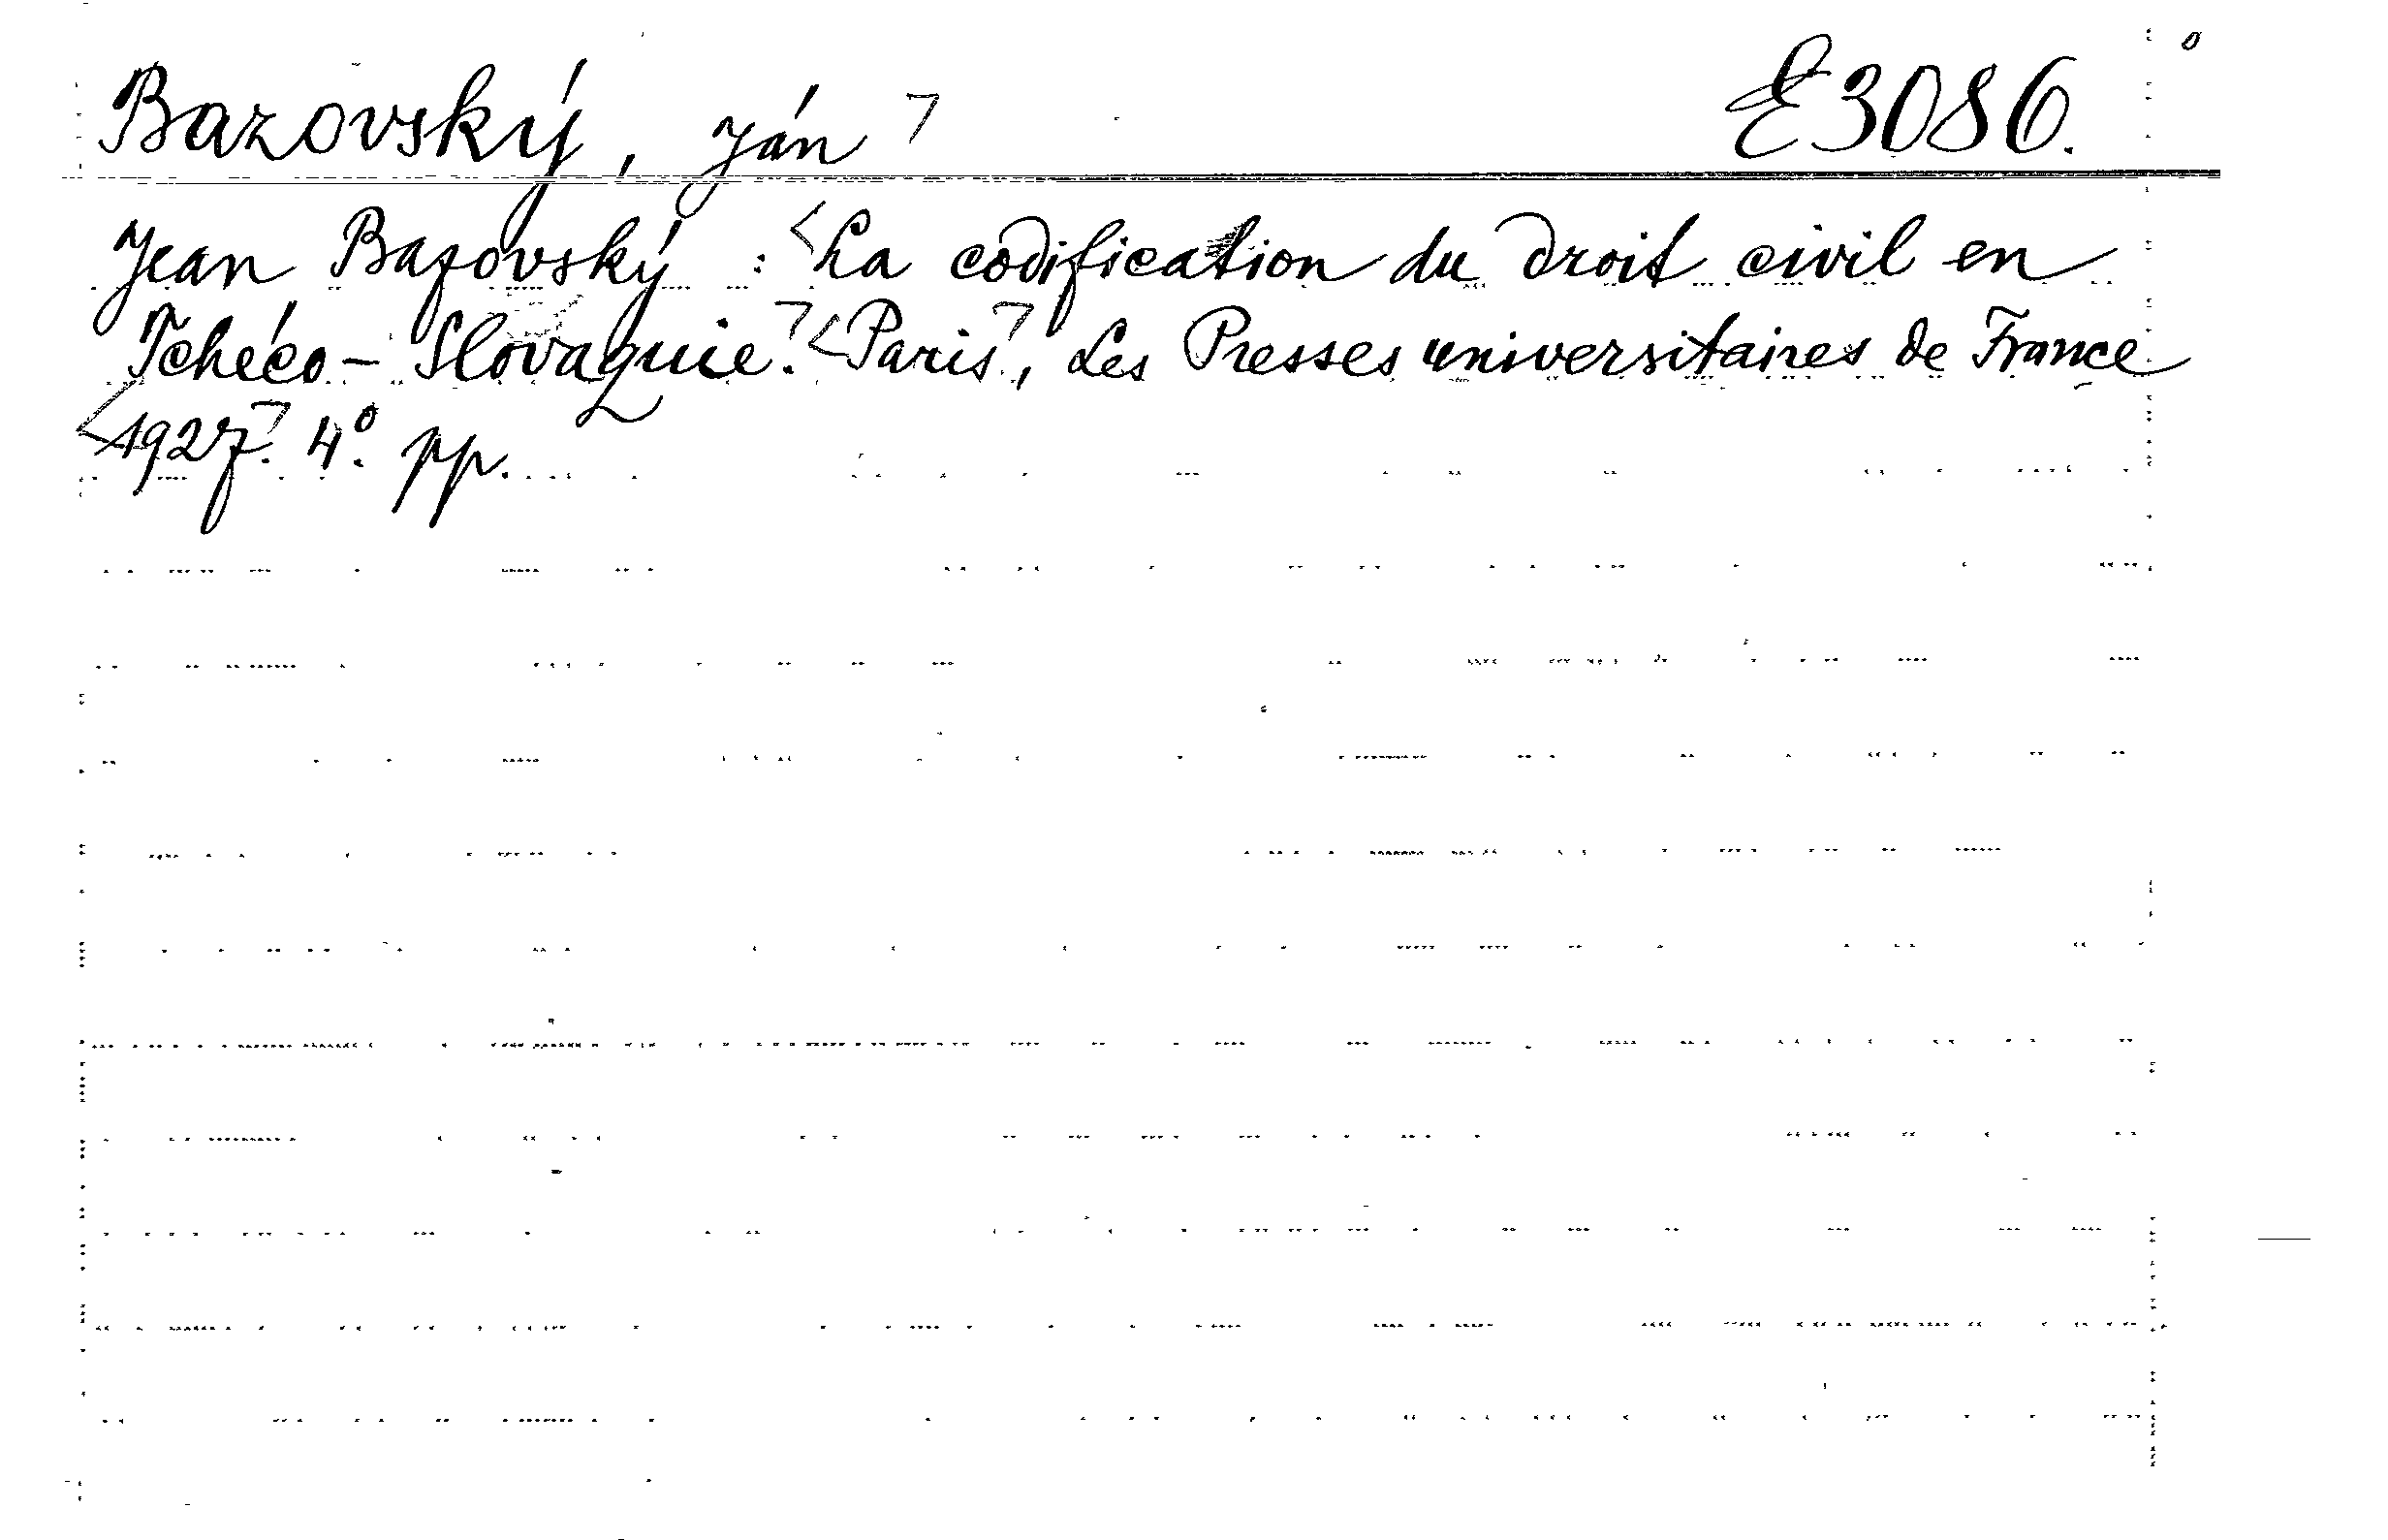 Bazovský, Ján E3086.
Jean Bazovský : La codification du droit civil en
Tchéco-Slovaquie. Paris, Les Presses universitaires de France
1927. 4º. pp.